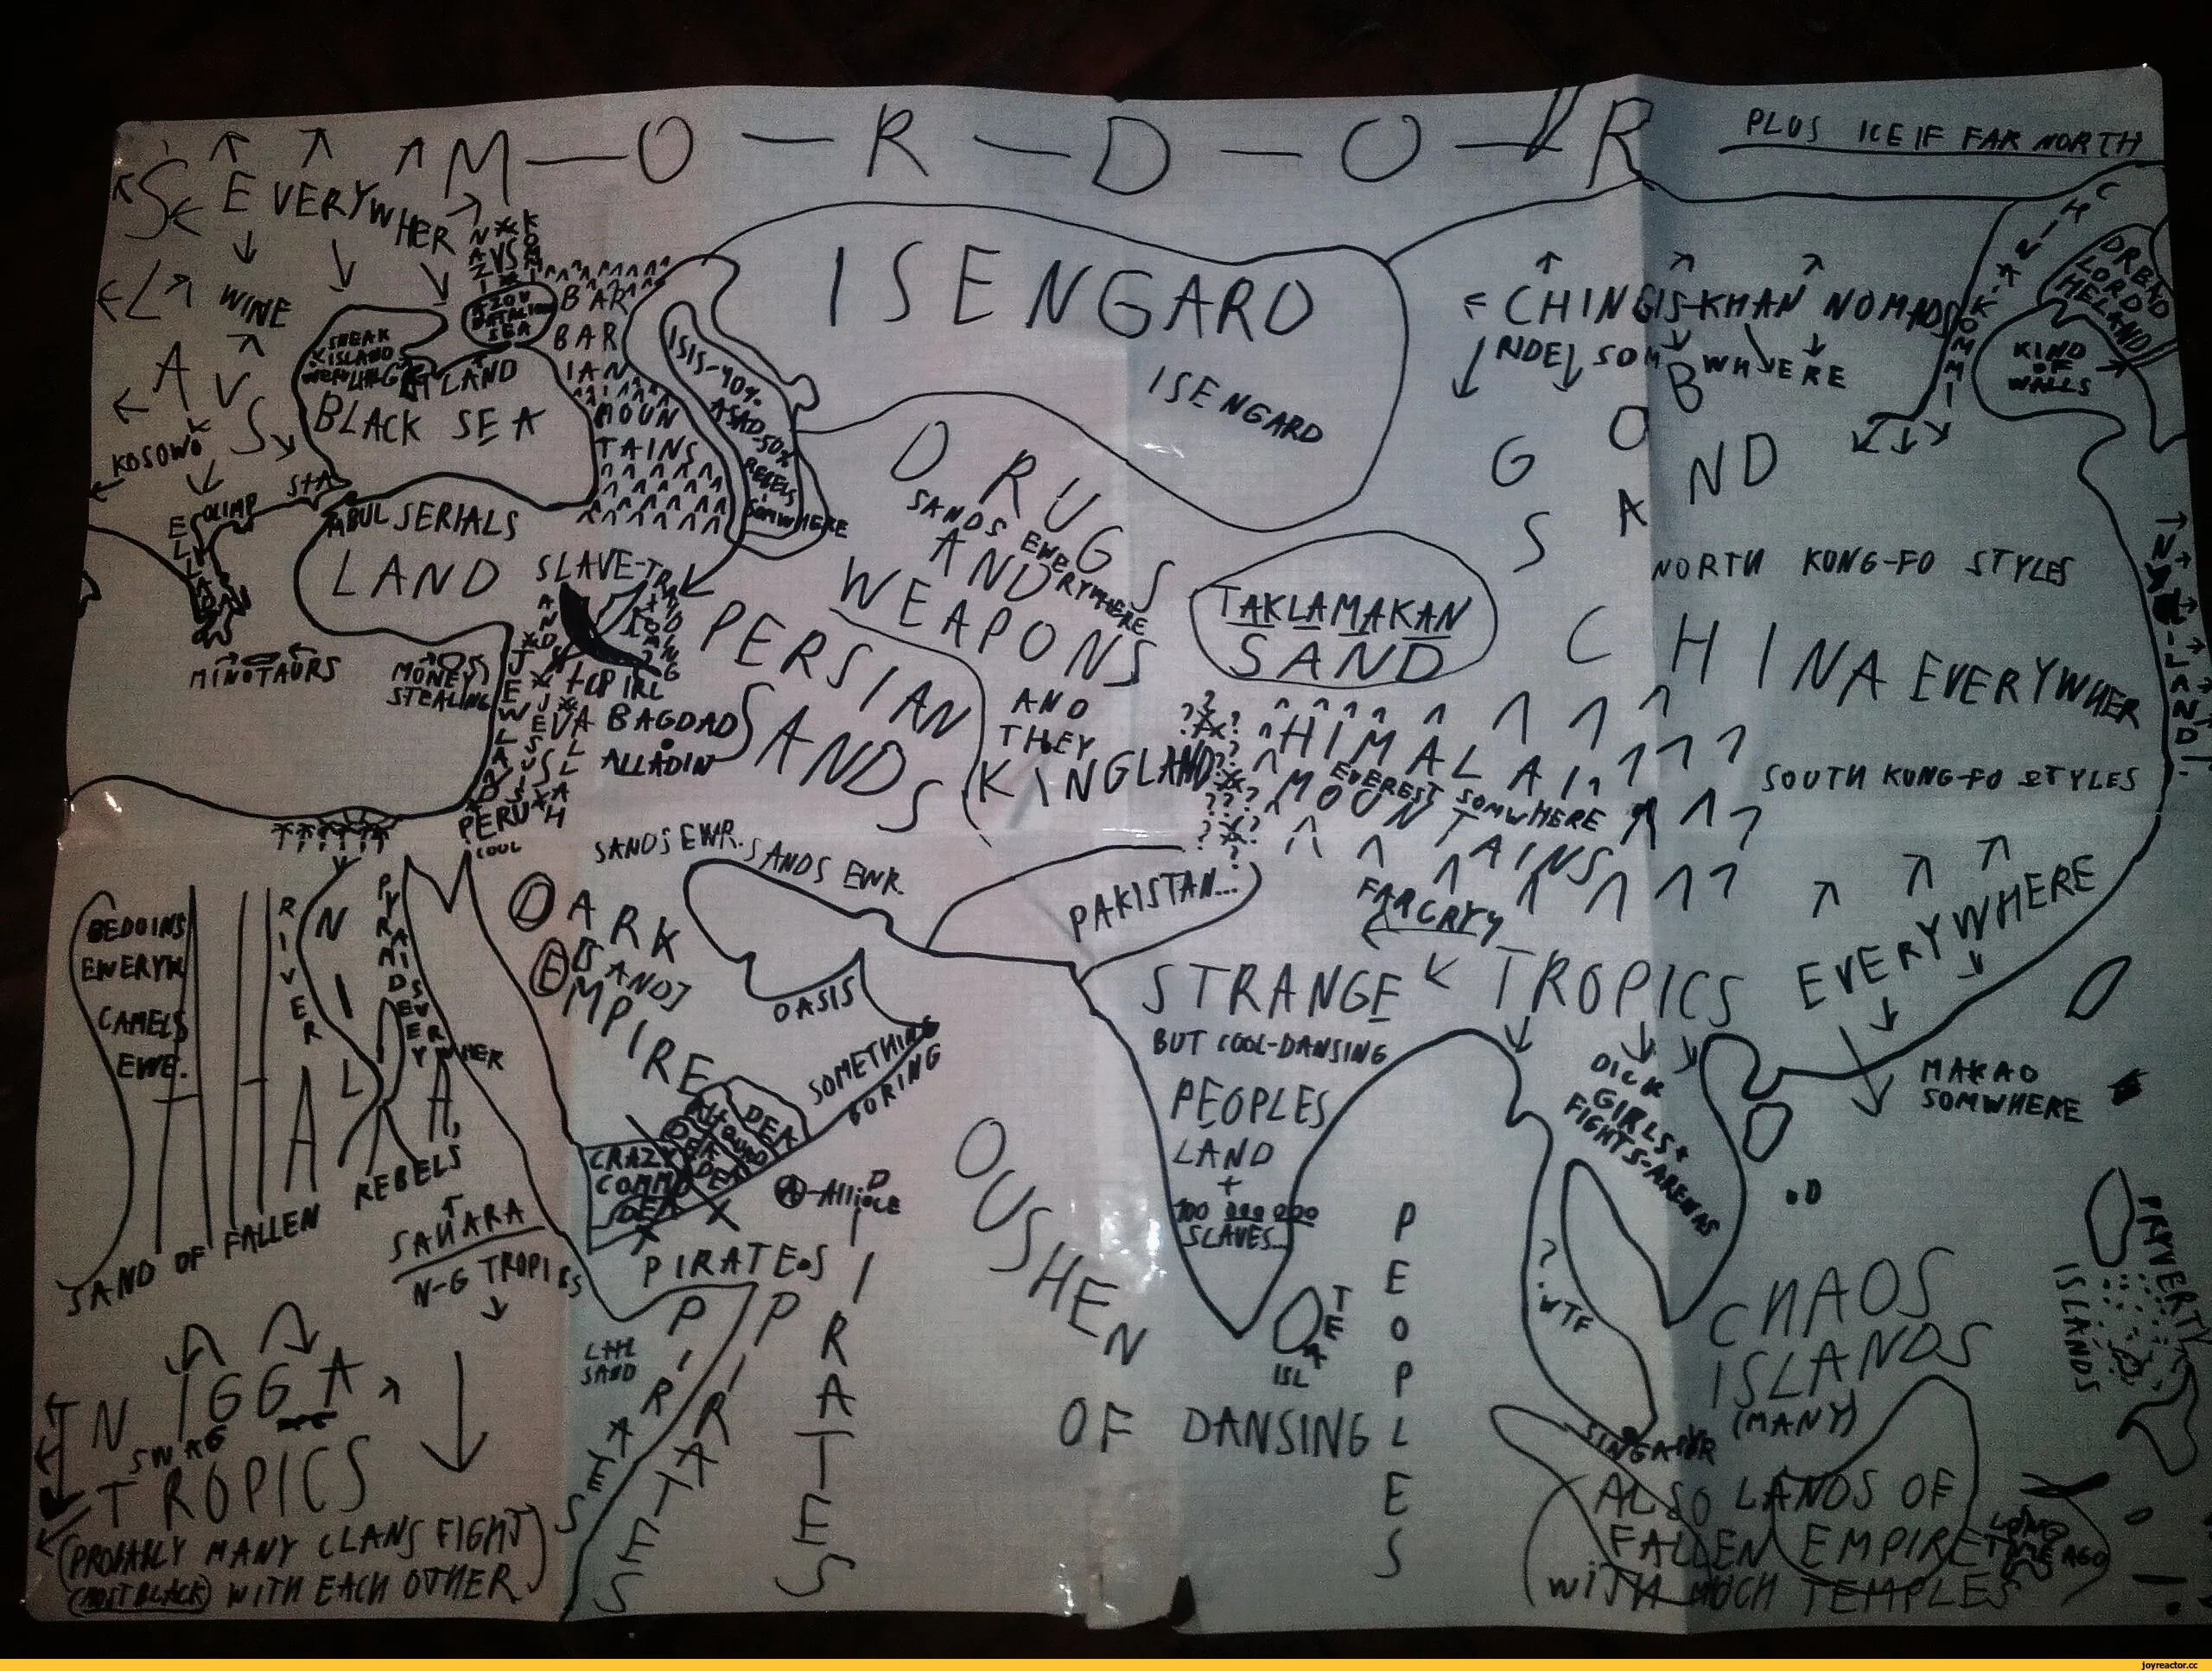 M—O—R—D—O—R
PLUS ICE IF FAR NORTH
EVERYWHER
SLAVS
WINE
KOSOWO
BARBARIAN
MOUNTAINS
SNEAK
ISLAND
BLACK SEA
AZOV
BATALION
SEA
ISIS-40%
ASAD-50%
REBELS
SOMWHERE
ISENGARD
ISENGARD
CHINGIS-KHAN NOMADS
RIDE SOMWHERE
GOB
SAND
KIND
OF
WALLS
DREAD
LORD
HELAND
OLIMP
ELLADA
SERIALS
LAND
MINOTAURS
MONEY
STEALING
PERSIAN
SANDS
DRUGS
AND
WEAPONS
SANDS EWERYWHERE
AND
THEY
KINGLAND
TAKLAMAKAN
SAND
NORTH KUNG-FO STYLES
CHINA EVERYWHER
SOUTH KUNG-FO STYLES
HIMALAI
MOUNTAINS
EVEREST SOMWHERE
BAGDAD
ALLADIN
PERU
COOL
SANDS EWR. SANDS EWR.
DARK
[SAND]
EMPIRE
OASIS
SOMETHING
BORING
PAKISTAN...
FARCRY4
STRANGE
BUT COOL-DANSING
PEOPLES
LAND
+
100 000 000
SLAVES...
TROPICS
EVERYWHERE
DICK
GIRLS+
FIGHTS-ARENAS
MAKAO
SOMWHERE
BEDOINS
EWERYW
CAMELS
EWE.
RIVER
NIL
PYRAMIDS
EVERYWHER
SAND OF FALLEN
REBELS
SAHARA
N-G TROPICS
CRAZY
PIRATES
PIRATES
PIRATES
PIRATES
OUSHEN
OF DANSING
PEOPLES
TEA
ISL
?.WTF
SINGAPUR
CHAOS
ISLANDS
(MANY)
ISLANDS
ALSO LANDS OF
FALLEN EMPIRE
LONG
TIME AGO
WITH MUCH TEMPLES
NIGGA
SWAG
TROPICS
(PROBABLY MANY CLANS FIGHT
(MOST BLACK) WITH EACH OTHER)
joyreactor.cc